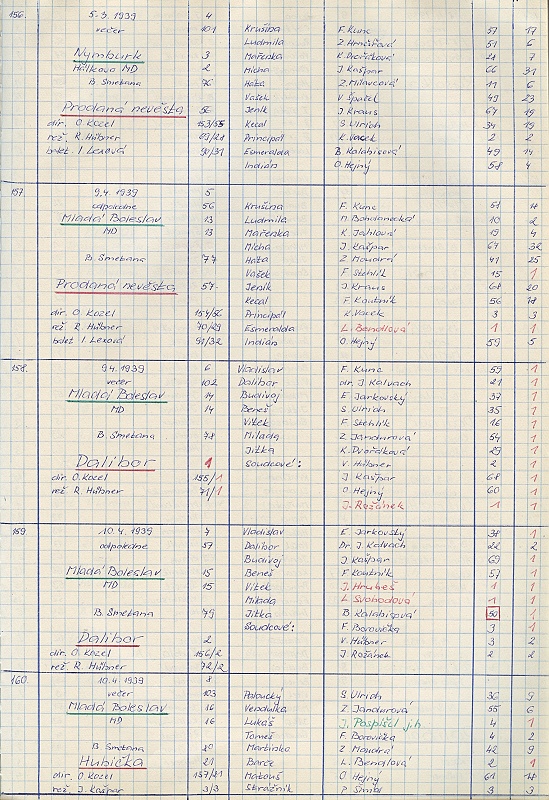 156. 5.3.1939 4
večer 101 Krušina F. Kunc 57 17
Ludmila Z. Hrnčířová 51 6
Nymburk 3 Mařenka K. Dvořáková 21 7
Hálkovo MD 2 Mícha J. Kašpar 66 31
B. Smetana 76 Háta Z. Milavcová 11 6
Vašek V. Špaček 49 23
Prodaná nevěsta 56 Jeník J. Kraus 67 19
dir. O. Kozel 153/55 Kecal S. Ulrich 34 19
rež. R. Hübner 69/28 Principál K. Vacek 2 2
balet. I. Lexová 90/31 Esmeralda B. Kalabisová 49 14
Indián O. Hejný 58 4
157. 9.4.1939 5
odpoledne 56 Krušina F. Kunc 51 18
Mladá Boleslav 13 Ludmila M. Bohdanecká 10 2
MD 13 Mařenka K. Jahlová 19 4
Mícha J. Kašpar 67 32
B. Smetana 77 Háta Z. Moudrá 41 25
Vašek F. Stehlík 15 1
Prodaná nevěsta 57 Jeník J. Kraus 68 20
Kecal F. Koutník 56 18
dir. O. Kozel 154/56 Principál K. Vacek 3 3
rež. R. Hübner 70/29 Esmeralda L. Bendlová 1 1
balet I. Lexová 91/32 Indián O. Hejný 59 5
158. 9.4.1939 6 Vladislav F. Kunc 59 1
večer 102 Dalibor dr. J. Kalvach 21 1
Mladá Boleslav 14 Budivoj E. Jarkovský 37 1
MD 14 Beneš S. Ulrich 35 1
Vítek F. Stehlík 16 1
B. Smetana 78 Milada Z. Jandurová 54 1
Jitka K. Dvořáková 29 1
Dalibor 1 Soudcové: V. Hübner 2 1
dir. O. Kozel 155/1 J. Kašpar 68 1
rež. R. Hübner 71/1 O. Hejný 60 1
J. Rožánek 1 1
159 10.4.1939 7 Vladislav E. Jarkovský 38 1
odpoledne 57 Dalibor Dr. J. Kalvach 22 2
Budivoj J. Kašpar 69 1
Mladá Boleslav 15 Beneš F. Koutník 57 1
MD 15 Vítek J. Hrubeš 1 1
Milada L. Svobodová 1 1
B. Smetana 79 Jitka B. Kalabisová 50 1
Soudcové: F. Borovička 3 1
Dalibor 2 V. Hübner 3 2
dir. O. Kozel 156/2 J. Rožánek 2 2
rež. R. Hübner 72/2
160. 10.4.1939 8
večer 103 Paloucký S. Ulrich 36 9
Mladá Boleslav 16 Vendulka Z. Jandurová 55 6
MD 16 Lukáš J. Pospíšil j.h. 4 1
Tomeš F. Borovička 4 2
B. Smetana 80 Martinka Z. Moudrá 42 9
Hubička 21 Barče L. Bendlová 2 1
dir. O. Kozel 157/21 Matouš O. Hejný 61 18
rež. J. Kašpar 3/3 Strážník 3 3